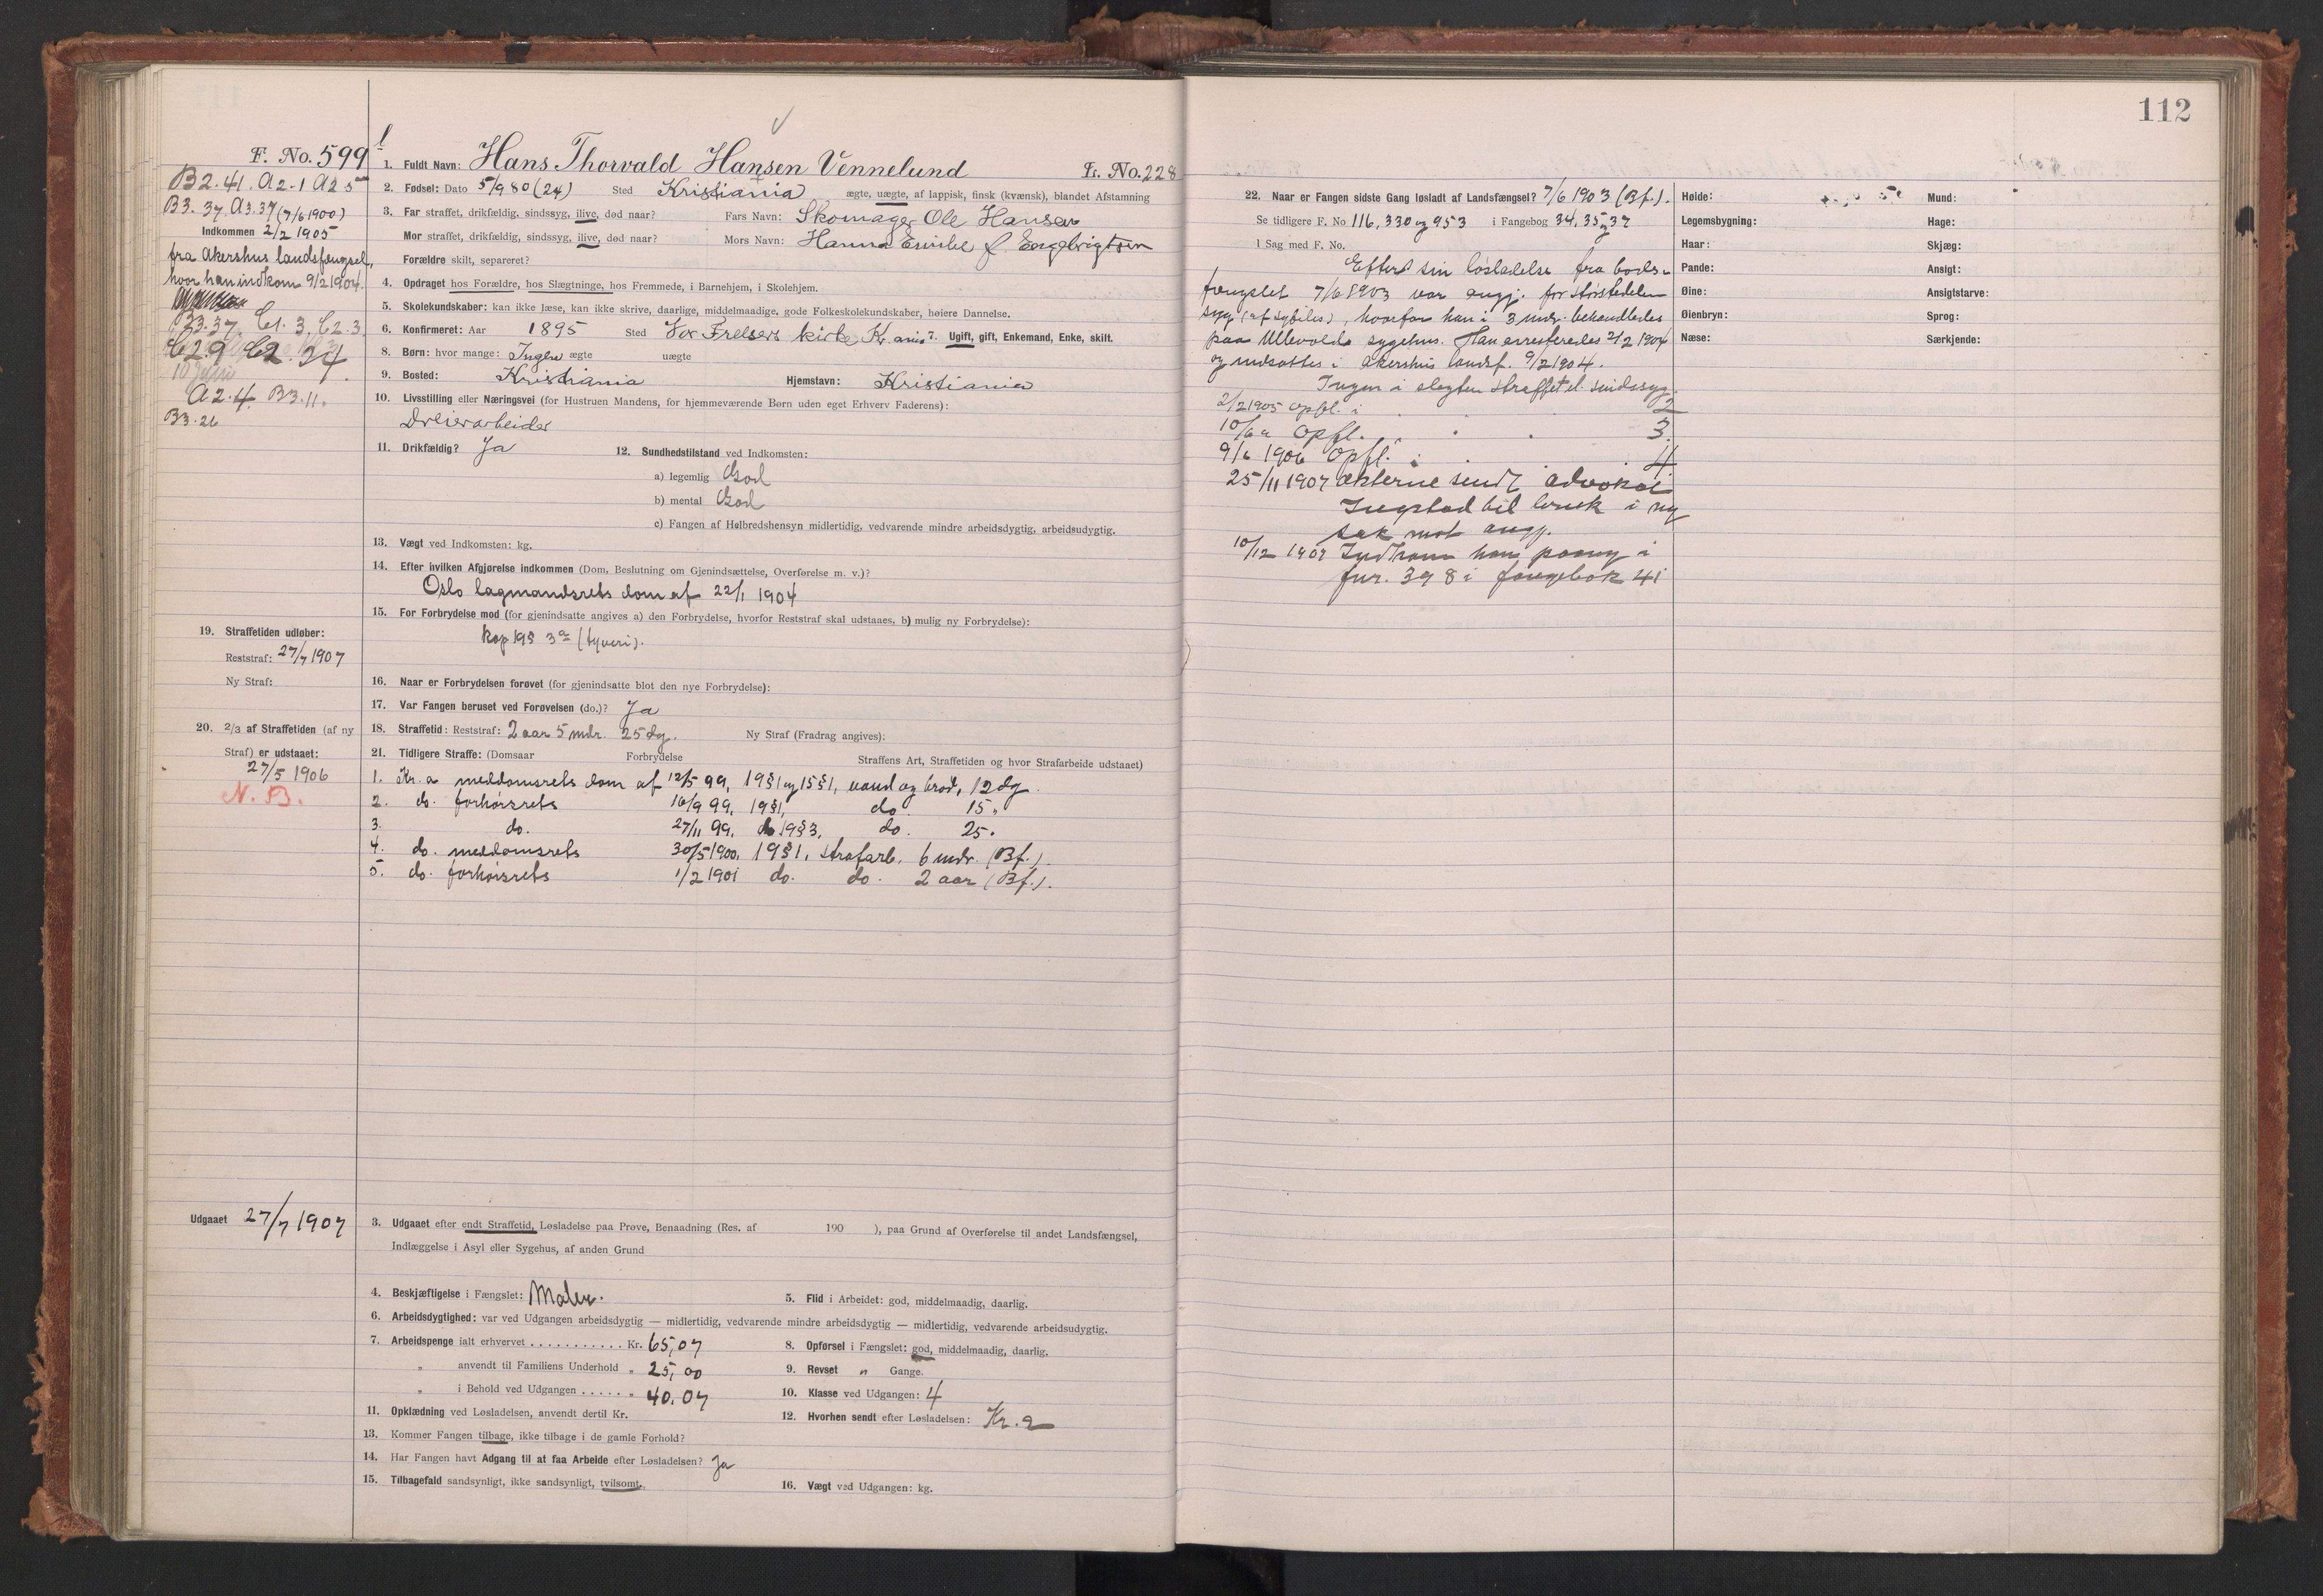 112
F. No. 599
B2.41. A2.1 A2 5
B3.37. A3.37 (7/6 1900)
Indkommen 2/2 1905
fra Akershus landsfængsel,
hvor han indkom 9/2 1904.
B3.37. C1.3. C2.3
C2.9 C2.34
A2.4. B3.11.
B3.26
1. Fuldt Navn: Hans Thorvald Hansen Vennelund Fr. No. 228
2. Fødsel: Dato 5/9 80 (24) Sted Kristiania ægte, uægte, af lappisk, finsk (kvænsk), blandet Afstamning
3. Far straffet, drikfældig, sindssyg, ilive, død naar? Fars Navn: Skomager Ole Hansen
Mor straffet, drikfældig, sindssyg, ilive, død naar? Mors Navn: Hanna f. Engebrigtsen
Forældre skilt, separeret?
4. Opdraget hos Forældre, hos Slægtninge, hos Fremmede, i Barnehjem, i Skolehjem.
5. Skolekundskaber: kan ikke læse, kan ikke skrive, daarlige, middelmaadige, gode Folkeskolekundskaber, høiere Dannelse.
6. Konfirmeret: Aar 1895 Sted Vor Frelsers kirke, Kr.ania 7. Ugift, gift, Enkemand, Enke, skilt.
8. Børn: hvor mange: Ingen ægte uægte
9. Bosted: Kristiania Hjemstavn: Kristiania
10. Livsstilling eller Næringsvei (for Hustruen Mandens, for hjemmeværende Børn uden eget Erhverv Faderens):
Dreierarbeider
11. Drikfældig? Ja 12. Sundhedstilstand ved Indkomsten:
a) legemlig God
b) mental God
c) Fangen af Helbredshensyn midlertidig, vedvarende mindre arbeidsdygtig, arbeidsudygtig.
13. Vægt ved Indkomsten: kg.
14. Efter hvilken Afgjørelse indkommen (Dom, Beslutning om Gjenindsættelse, Overførelse m. v.)?
Oslo lagmandsrets dom af 22/1 1904
15. For Forbrydelse mod (for gjenindsatte angives a) den Forbrydelse, hvorfor Reststraf skal udstaaes, b) mulig ny Forbrydelse):
kap 19 § 3 (tyveri).
16. Naar er Forbrydelsen forøvet (for gjenindsatte blot den nye Forbrydelse):
17. Var Fangen beruset ved Forøvelsen (do.)? Ja
18. Straffetid: Reststraf: 2 aar 5 mdr. 25 dg. Ny Straf (Fradrag angives):
19. Straffetiden udløber:
Reststraf: 27/7 1907
Ny Straf:
20. 2/3 af Straffetiden (af ny
Straf) er udstaaet:
27/5 1906
N.B.
21. Tidligere Straffe: (Domsaar Forbrydelse Straffens Art, Straffetiden og hvor Strafarbeide udstaaet)
1. Kr.a meddomsrets dom af 12/5 99, 19§1 og 15§1, vand og brød, 12 dg.
2. do. forhørsrets 16/9 99, 19§1, do. 15 "
3. do. 27/11 99, 19§3, do. 25 "
4. do. meddomsrets 30/5 1900, 19§1, strafarb. 6 mdr. (Bf.).
5. do. forhørsrets 1/2 1901 do. do. 2 aar (Bf.).
Udgaaet 27/7 1907
3. Udgaaet efter endt Straffetid, Løsladelse paa Prøve, Benaadning (Res. af 190 ), paa Grund af Overførelse til andet Landsfængsel,
Indlæggelse i Asyl eller Sygehus, af anden Grund
4. Beskjæftigelse i Fængslet: Maler. 5. Flid i Arbeidet: god, middelmaadig, daarlig.
6. Arbeidsdygtighed: var ved Udgangen arbeidsdygtig — midlertidig, vedvarende mindre arbeidsdygtig — midlertidig, vedvarende arbeidsudygtig.
7. Arbeidspenge ialt erhvervet . . . . . . . . . . . Kr. 65,07 8. Opførsel i Fængslet: god, middelmaadig, daarlig.
" anvendt til Familiens Underhold " 25,00 9. Revset " Gange.
" i Behold ved Udgangen . . . . . . " 40,07 10. Klasse ved Udgangen: 4
11. Opklædning ved Løsladelsen, anvendt dertil Kr. 12. Hvorhen sendt efter Løsladelsen: Kr. a
13. Kommer Fangen tilbage, ikke tilbage i de gamle Forhold?
14. Har Fangen havt Adgang til at faa Arbeide efter Løsladelsen? Ja
15. Tilbagefald sandsynligt, ikke sandsynligt, tvilsomt. 16. Vægt ved Udgangen: kg.
22. Naar er Fangen sidste Gang løsladt af Landsfængsel? 7/6 1903 (Bf.).
Se tidligere F. No 116, 330 og 953 i Fangebog 34, 35 og 37
I Sag med F. No.
Efter sin løsladelse fra bods-
fængslet 7/6 1903 var angj. for størstedelen
syg (af syfilis), hvorfor han i 3 mdr. behandledes
paa Ullevolds sygehus. Han arresteredes 2/2 1904
og indsattes i Akershus landsf. 9/2 1904.
Ingen i slægten straffet el. sindssyg.
2/2 1905 opfl. i 2
10/6 " Opfl. " 3.
9/6 1906 Opfl. " 4
25/11 1907 akterne sendt advokat
til bruk i ny
sak mot angj.
10/12 1907 Indkom han paany i
fnr. 398 i fangebok 41
Høide:
Legemsbygning:
Haar:
Pande:
Øine:
Øienbryn:
Næse:
Mund:
Hage:
Skjæg:
Ansigt:
Ansigtsfarve:
Sprog:
Særkjende: